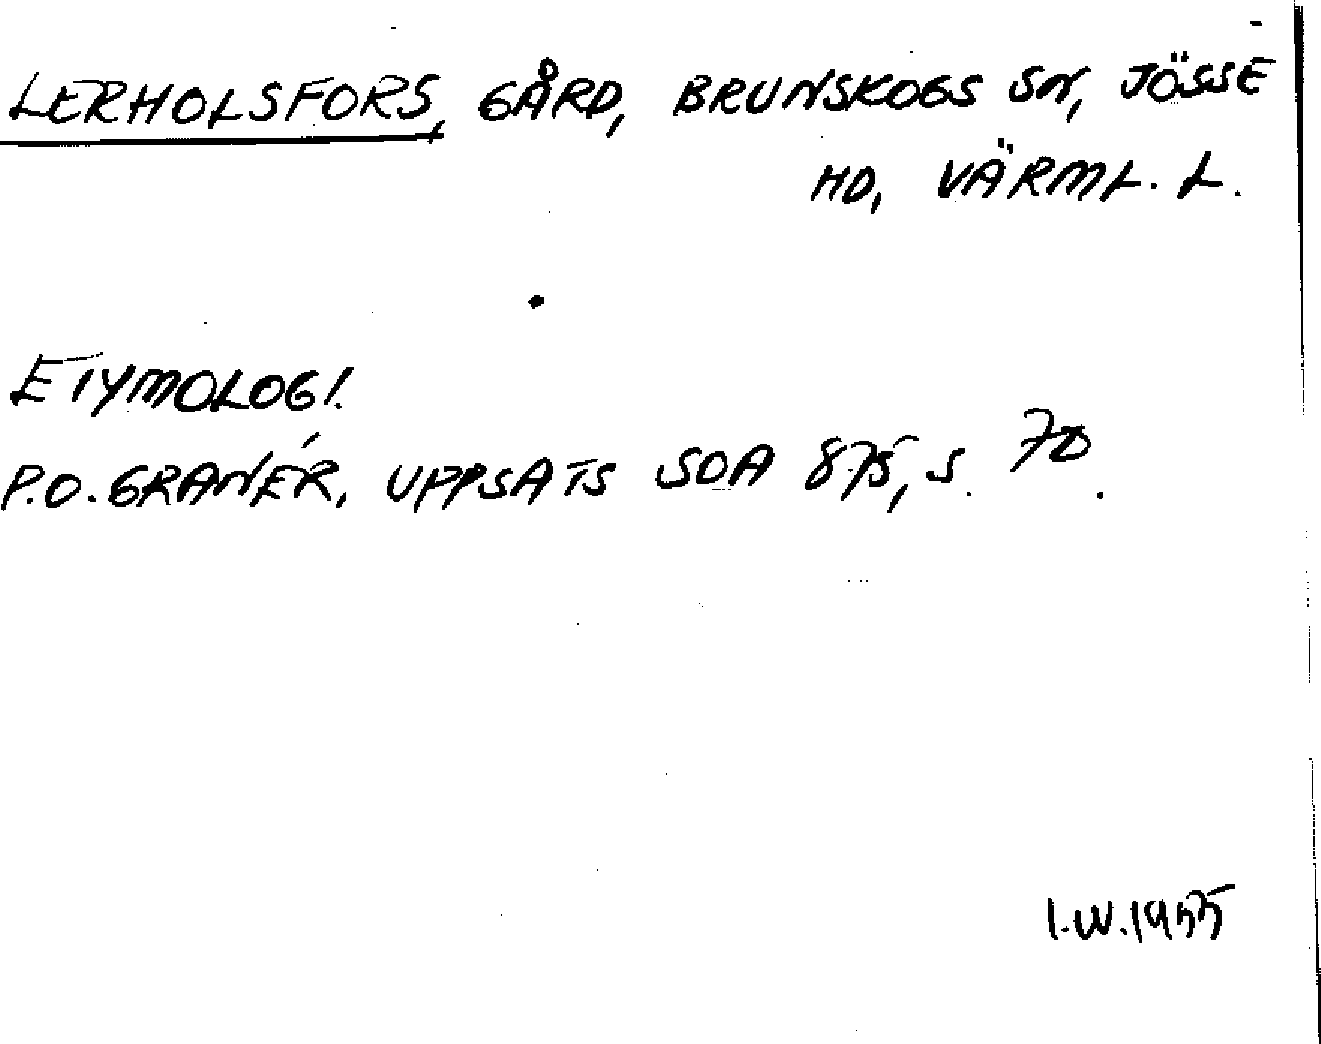 LERHOLSFORS, GÅRD, BRUNSKOGS SN, JÖSSE
HD, VÄRML. L.
ETYMOLOGI.
P.O. GRANÉR, UPPSATS SOA 875, S. 70.
I.W. 1955